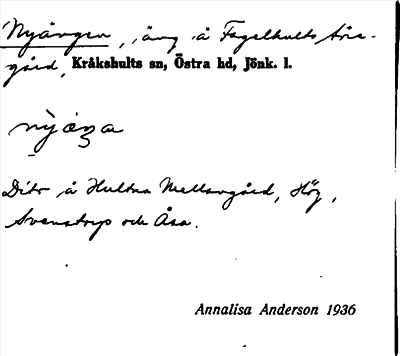 Nyängen, äng å Fagelhults Åre-
gård, Kråkshults sn, Östra hd, Jönk. l.
nỳæŋa
Dito å Hultna Mellangård, Hög,
Svenstorp och Åsa.
Annalisa Anderson 1936